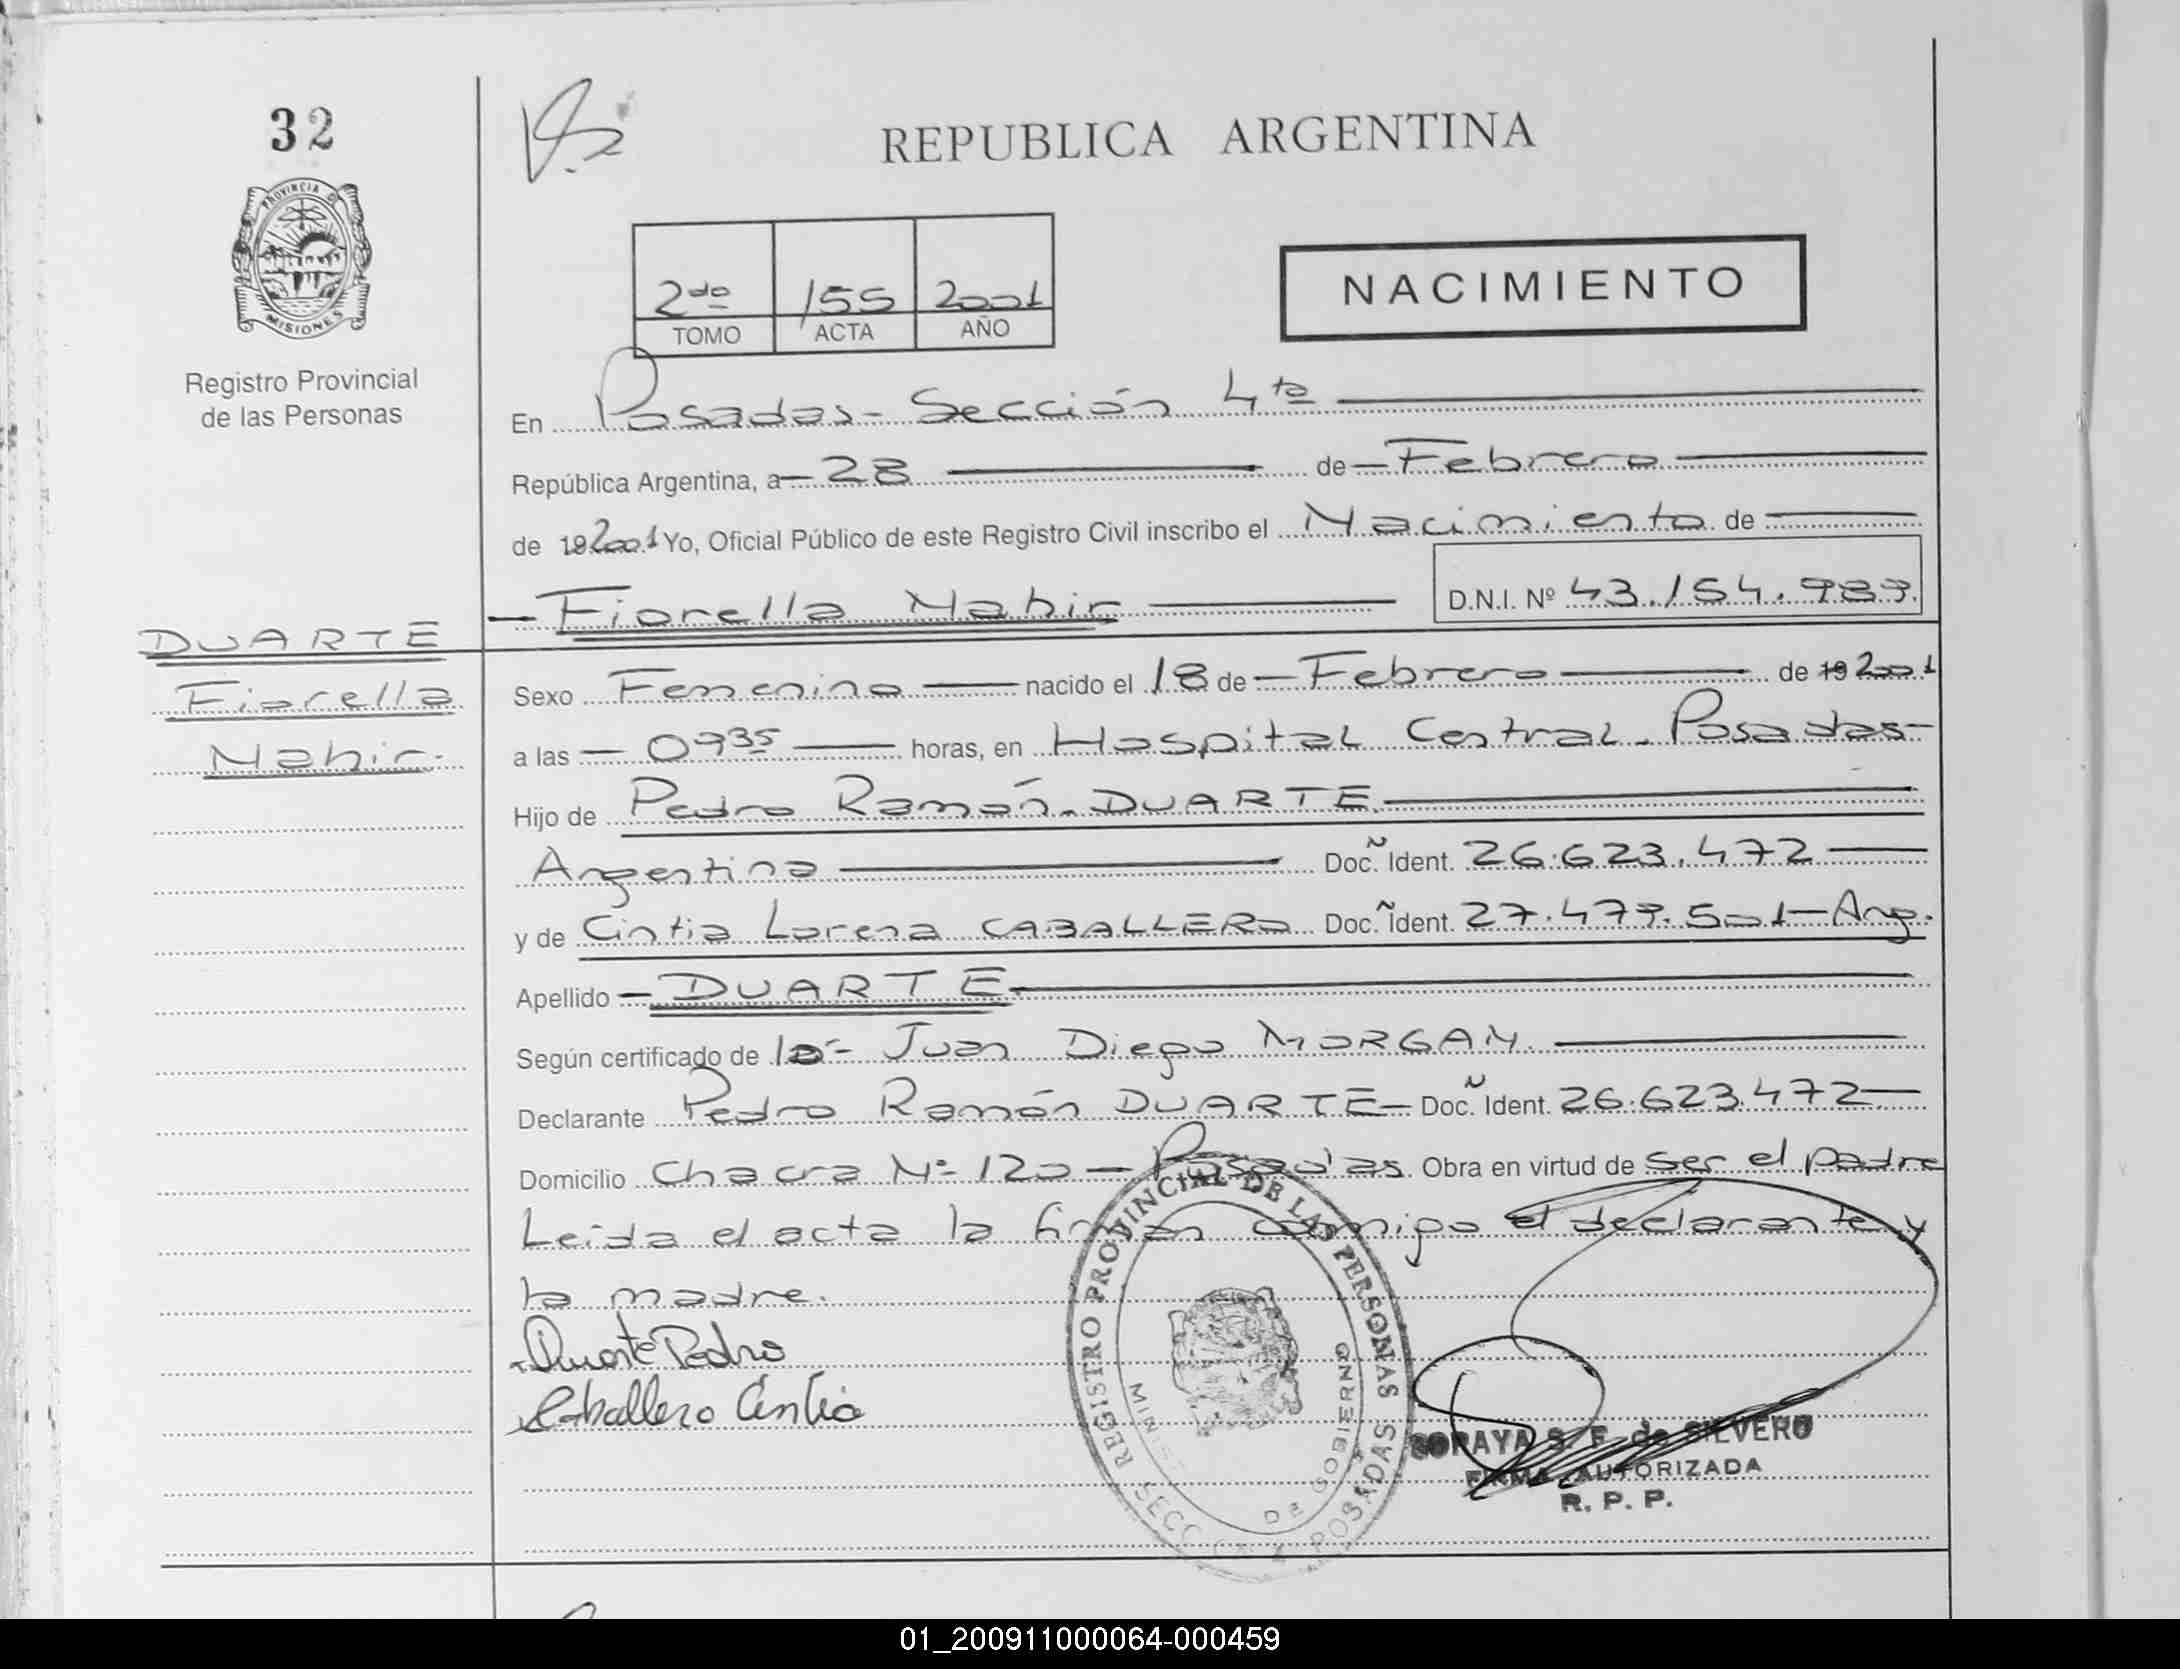 32
REPUBLICA ARGENTINA
PROVINCIA D
MISIONES
Registro Provincial
de las Personas
2do 155 2001
TOMO ACTA AÑO
NACIMIENTO
En Posadas - Sección 4ta
República Argentina, a 28 de Febrero
de 19 2001 Yo, Oficial Público de este Registro Civil inscribo el Nacimiento de
Fiorella Nahir D.N.I. Nº 43.154.989.
DUARTE
Fiorella
Nahir.
Sexo Femenino nacido el 18 de Febrero de 19 2001
a las 0935 horas, en Hospital Central - Posadas -
Hijo de Pedro Ramón - DUARTE.
Argentino Doc. Ident. 26.623.472
y de Cintia Lorena CABALLERO Doc. Ident. 27.479.501 - Arg.
Apellido DUARTE
Según certificado de Juan Diego MORGAN.
Declarante Pedro Ramón DUARTE - Doc. Ident. 26.623.472
Domicilio Chacra Nº 120 - Posadas Obra en virtud de ser el padre
Leida el acta la firman conmigo el declarante y
la madre.
Duarte Pedro
Caballero Cintia
REGISTRO PROVINCIAL DE LAS PERSONAS
DE GOBIERNO
POSADAS
SORAYA S. F. de SILVERO
FIRMA AUTORIZADA
R. P. P.
01_200911000064-000459